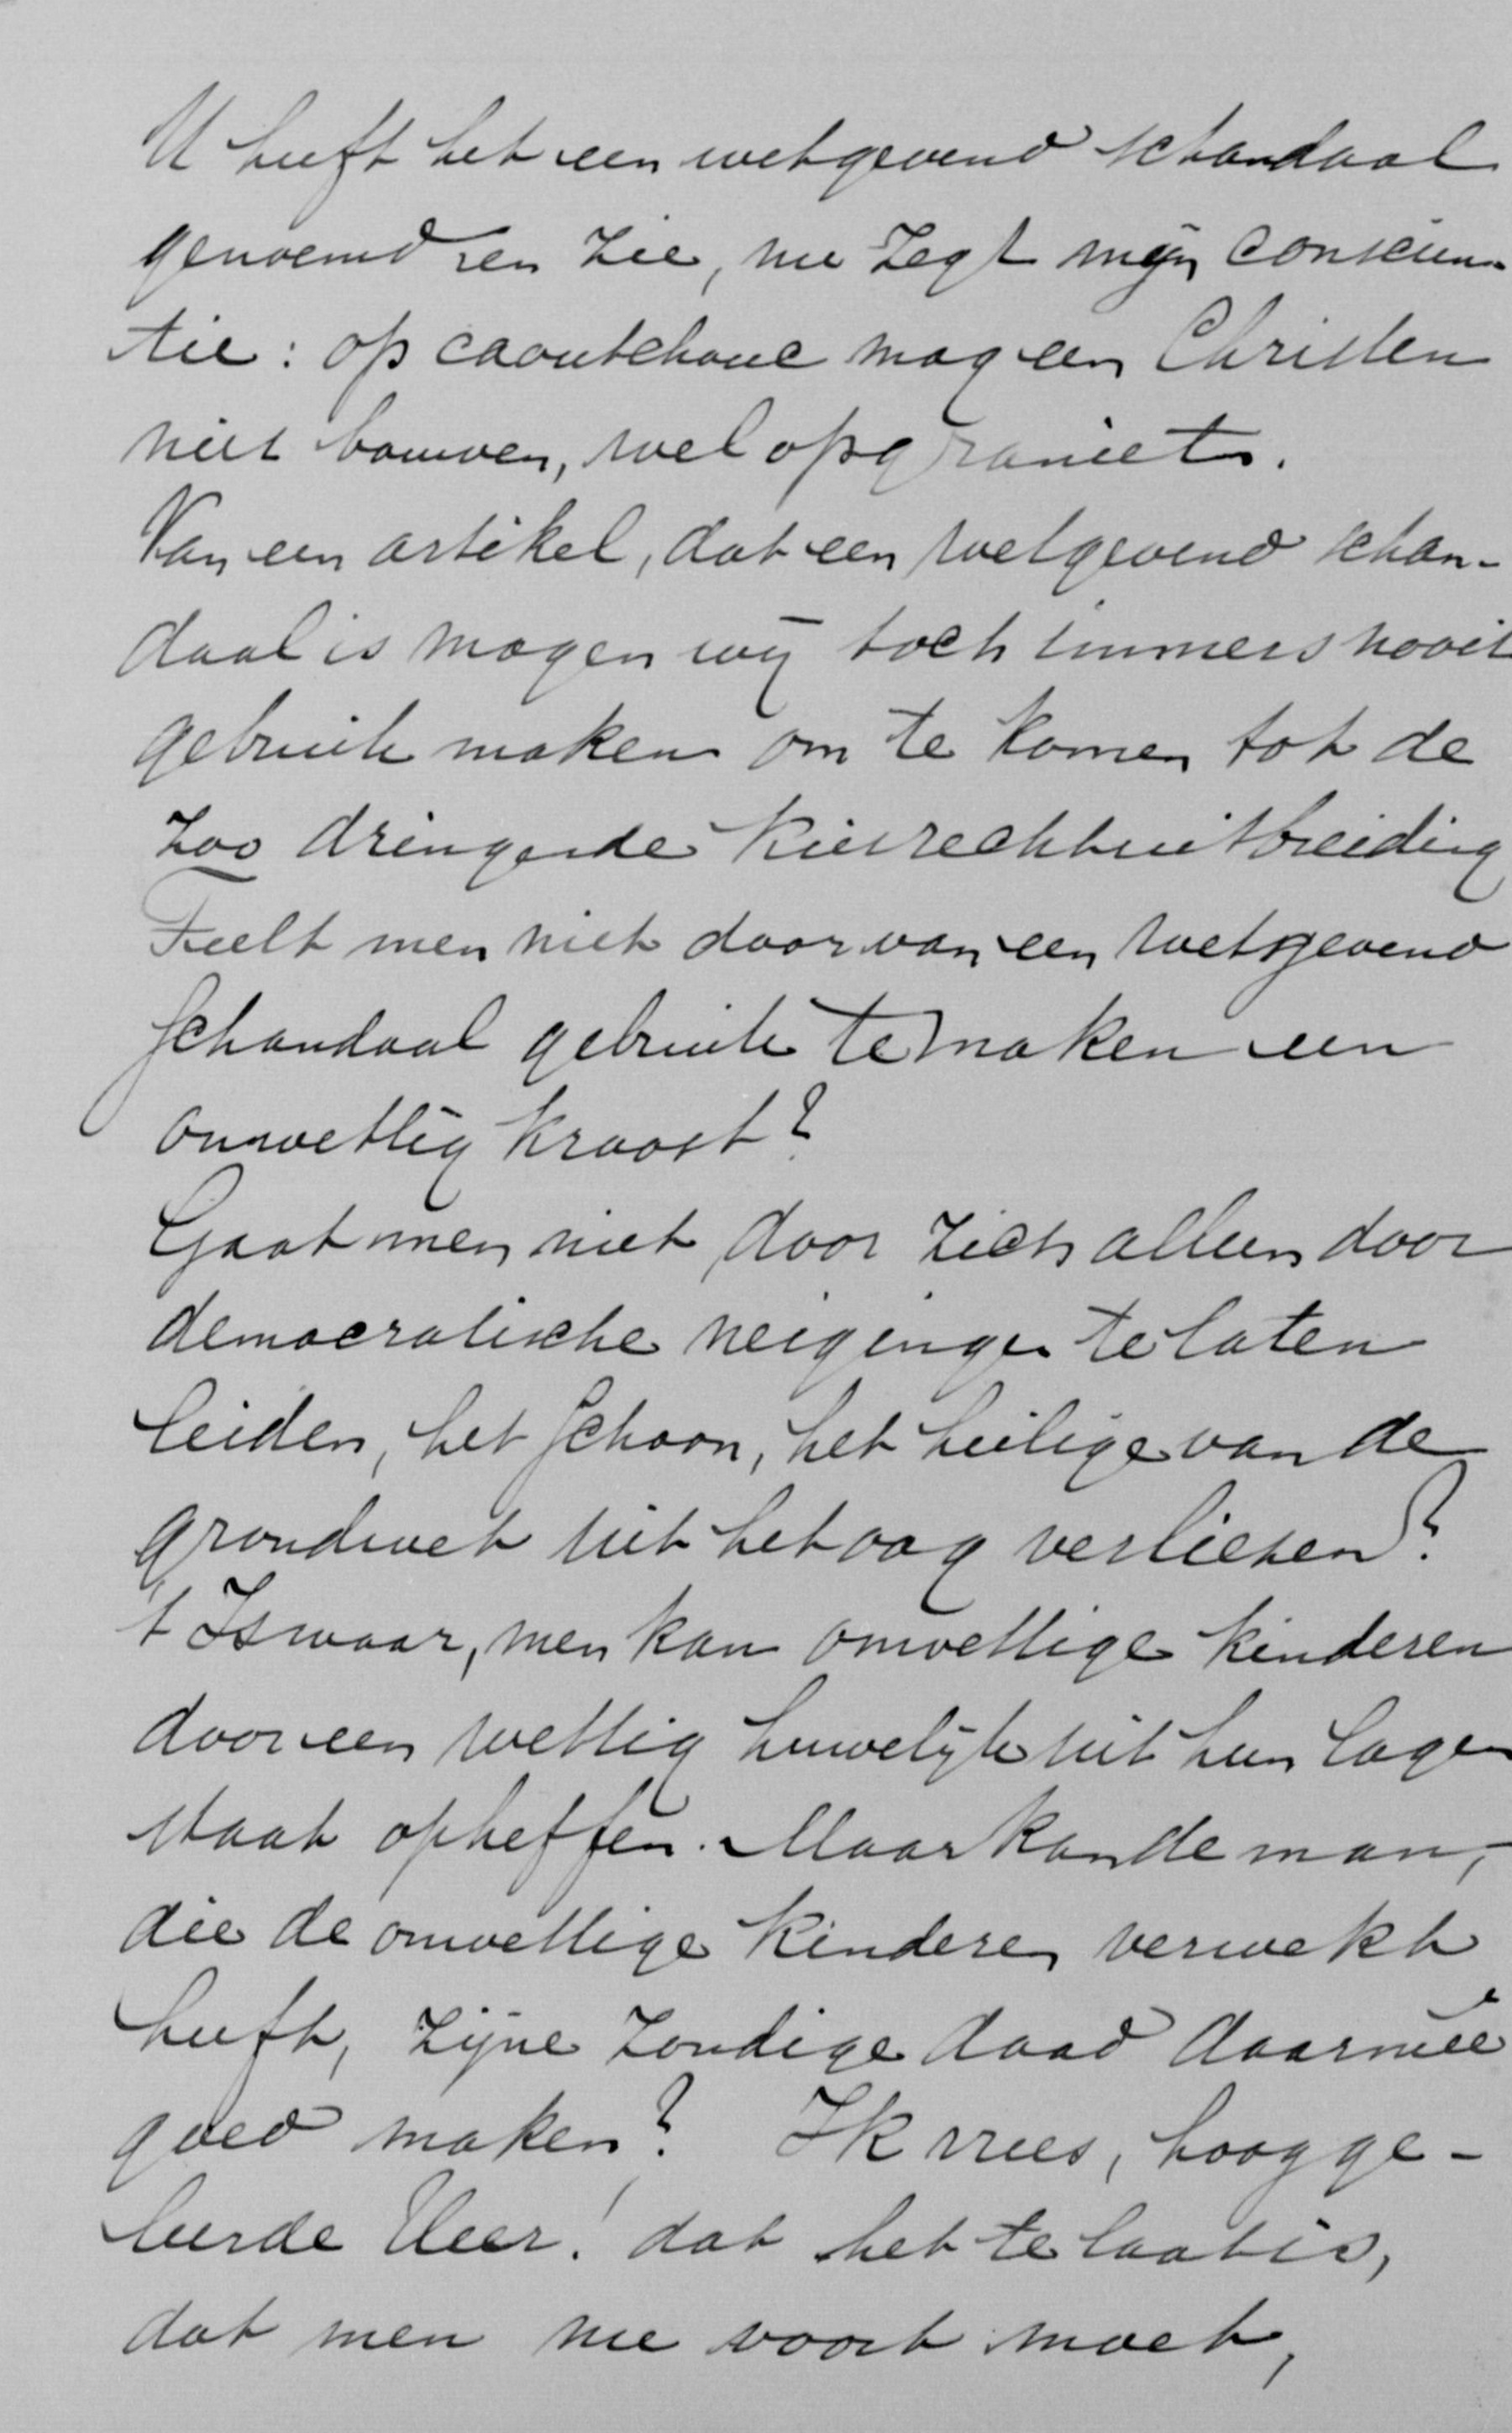 U heeft het een wetgevend schandaal
genoemd en zie, nu zegt mijn conscien-
tie: op caoutchouc mag een Christen
niet bouwen, wel op graniet.
Van een artikel, dat een wetgevend schan-
daal is mogen wij toch immers nooit
gebruik maken om te komen tot de
zoo dringende kiesrechtuitbreiding
Teelt men niet door van een wetgevend
schandaal gebruik te maken een
onwettig kroost?
Gaat men niet, door zich alleen door
democratische neigingen te laten
leiden, het schoon, het heilige van de
grondwet uit het oog verliezen?
't Is waar, men kan onwettige kinderen
door een wettig huwelijk uit hun lagen
staat opheffen. Maar kan de man,
die de onwettige kinderen verwekt
heeft, zijne zondige daad daarmeê
goed maken? Ik vrees, hoogge-
leerde Heer! dat het te laat is,
dat men nu voort moet,